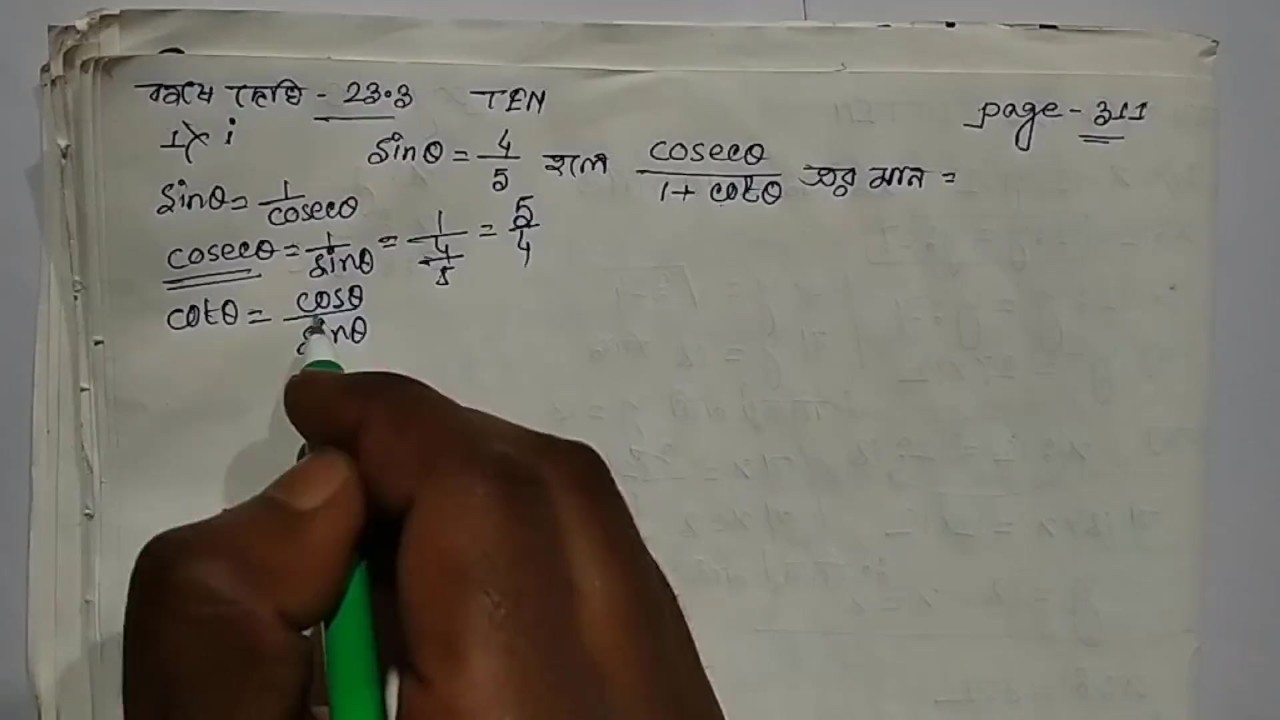 কষে দেখি - 23.3 TEN page - 311
1) i sinθ = 4/5 হলে cosecθ/(1 + cotθ) এর মান =
sinθ = 1/cosecθ
cosecθ = 1/sinθ = 1/(4/5) = 5/4
cotθ = cosθ/sinθ